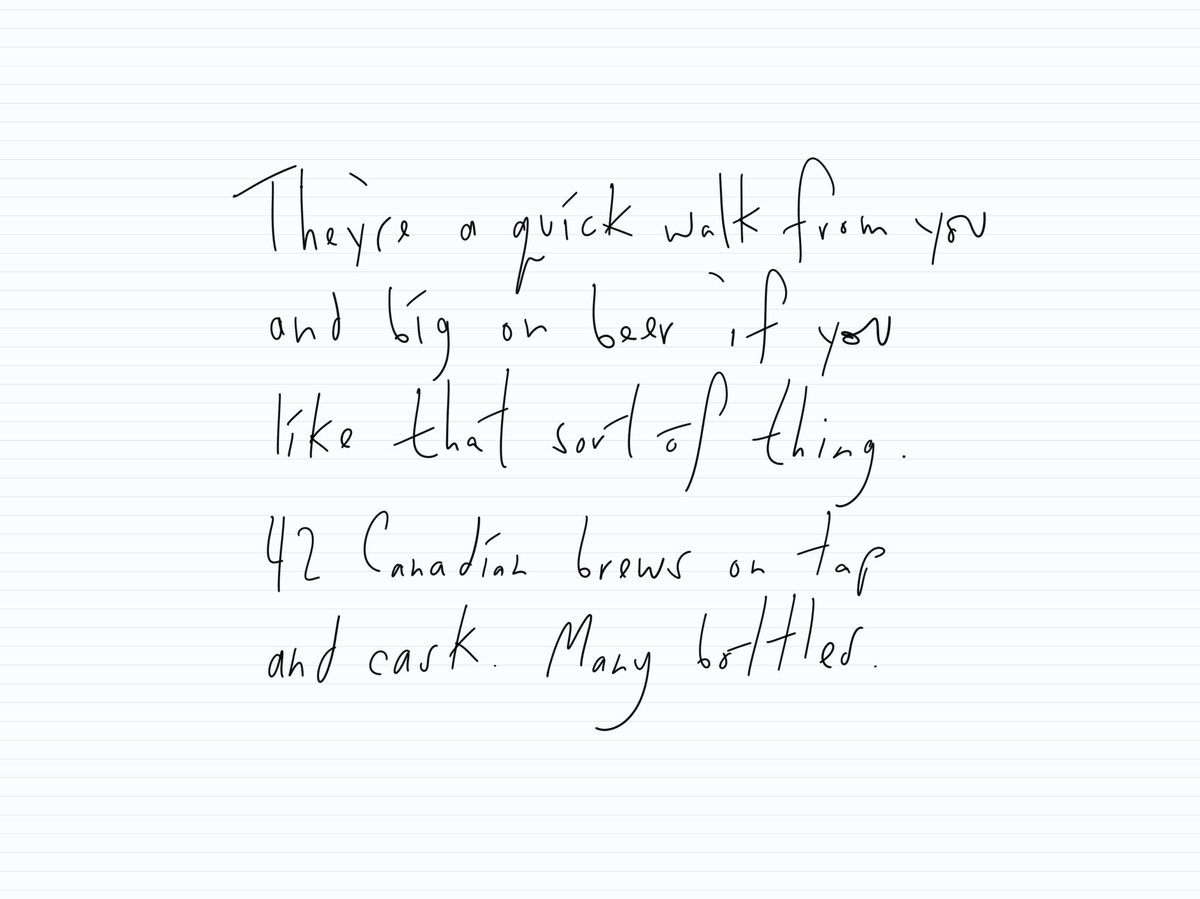 They're a quick walk from you
and big on beer if you
like that sort of thing.
42 Canadian brews on tap
and cask. Many bottles.